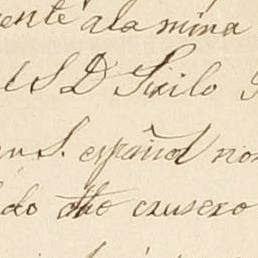 ente a la mina
el S D Sixilo
un S. español nom
do dho crusero